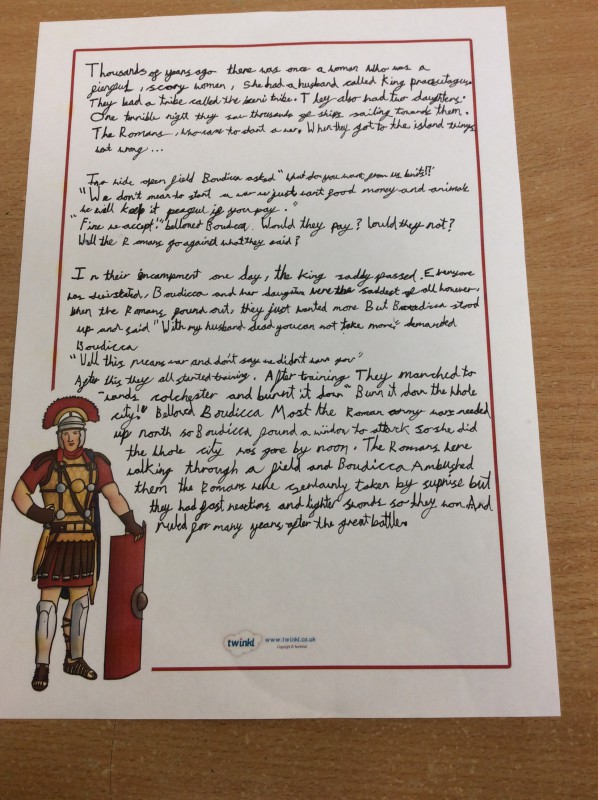 Thousands of years ago there was once a woman who was a
giengful, scary women, she had a husband called King pracutagus.
They lead a tribe called the Iceni tribe. They also had two daughters.
One terrible night they saw thousands of ships sailing towards them.
The Romans, who came to start a war. When they got to the island things
wat wrong...
In a wide open field Boudicca asked "What do you want from us brits!?"
"We don't mean to start a war we just want food money and animals
we will keep it peaceful if you pay."
"Fine we accept!" bellowed Boudicca. Would they pay? Would they not?
Will the Romans go against what they said?
In their encampment one day, the king sadly passed. Everyone
was devistated, Boudicca and her daughters were the saddest of all however,
when the Romans found out, they just wanted more But Boudicca stood
up and said "With my husband dead you can not take more" demanded
Boudicca
"Well this means war and don't say we didn't warn you"
After this they all started training. After training They marched to
wards colchester and burnt it down "Burn it down the whole
city!" Bellowd Boudicca Most the Roman army was needed
up north so Boudicca found a window to attack so she did
the whole city was gone by noon. The Romans were
walking through a field and Boudicca Ambushed
them the Romans were certainly taken by suprise but
they had fast reactions and lighter swords so they won And
ruled for many years after the great battle.
twinkl
www.twinkl.co.uk